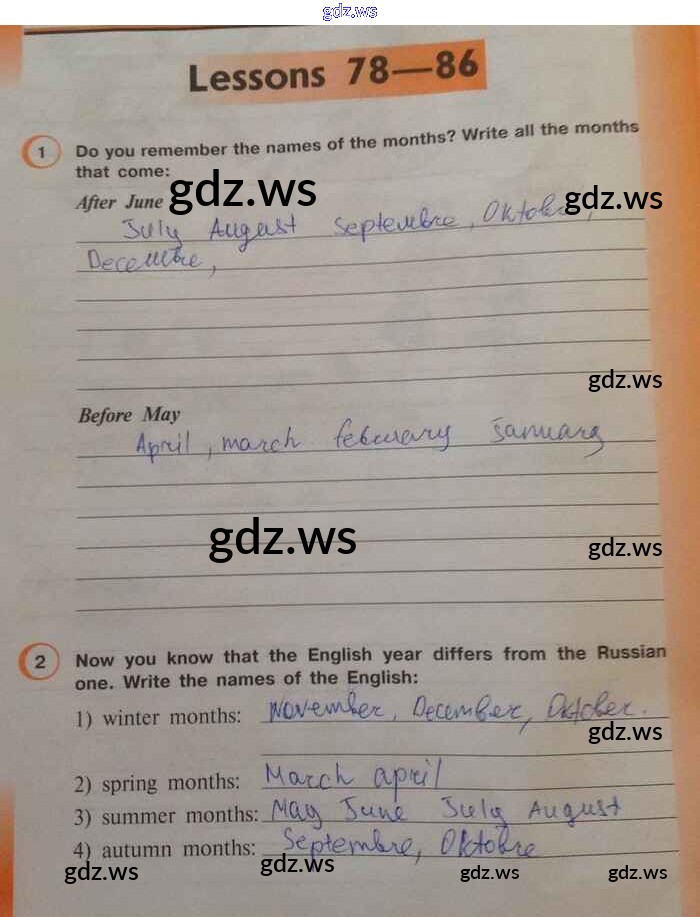 gdz.ws
Lessons 78—86
1 Do you remember the names of the months? Write all the months
that come:
After June gdz.ws gdz.ws
July August Septembre, Oktobre,
Decembre,
gdz.ws
Before May
April, march february January
gdz.ws gdz.ws
2 Now you know that the English year differs from the Russian
one. Write the names of the English:
1) winter months: November, December, Oktober.
gdz.ws
2) spring months: March april
3) summer months: May June July August
4) autumn months: Septembre, Oktobre
gdz.ws gdz.ws gdz.ws gdz.ws